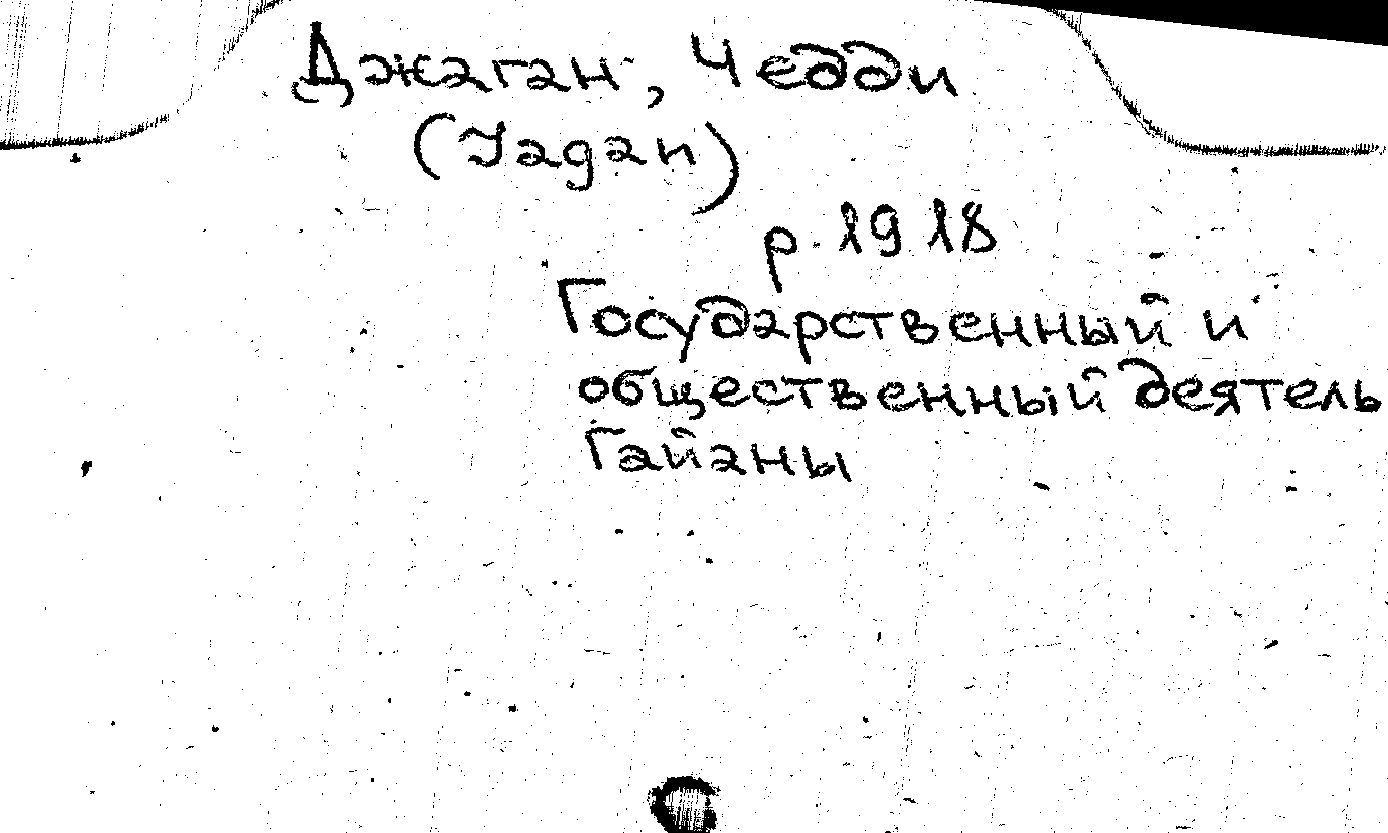 Джаган, Чедди
(Jagan)
р. 1918
Государственный и
общественный деятель
Гайаны